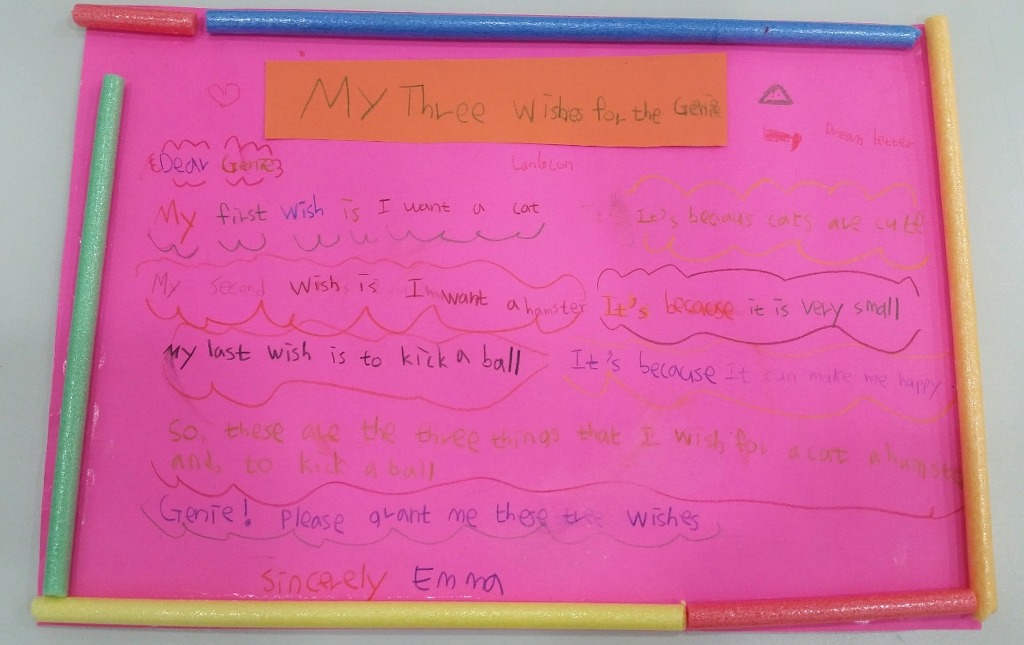 My Three Wishes for the Genie
Dream letter
Dear Genie
My first wish is I want a cat It's becaus cats are cutt
My second wish is I want a hamster It's because it is very small
My last wish is to kick a ball It's because It can make me happy
So, these are the three things that I wish for a cat a hamste
and, to kick a ball
Genie! Please grant me these tree wishes
Sincerely Emma